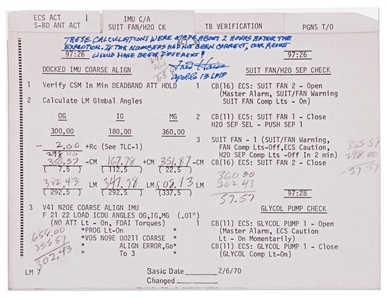 ECS ACT I IMU C/A PGNS T/O
S-BD ANT ACT SUIT FAN/H2O CK TB VERIFICATION
THESE CALCULATIONS WERE MADE ABOUT 2 HOURS AFTER THE
EXPLOSION. IF THE NUMBERS HAD NOT BEEN CORRECT, OUR
WOULD HAVE BEEN DIFFERENT!
97:26 97:26
Fred Haise
Apollo 13 LMP
DOCKED IMU COARSE ALIGN SUIT FAN/H2O SEP CHECK
1 Verify CSM in Min DEADBAND ATT HOLD
2 Calculate LM Gimbal Angles
OG IG MG
300.00 180.00 360.00
- 2.00 +Rc (See TLC-1)
298.00
-CM 167.78 +CM 351.87 -CM
( 7.5 ) ( 112.5 ) ( 22.5 )
302.43 LM 347.78 LM LM
( 292.5 ) ( 292.5 ) ( 337.5 )
3 V41 N20E COARSE ALIGN IMU
F 21 22 LOAD ICDU ANGLES OG,IG,MG (.01°)
(NO ATT Lt - On, FDAI Torques)
*PROG Lt-On *
*V05 N09E 00211 COARSE *
* ALIGN ERROR,Go*
* To 3 *
302.43
1 CB(16) ECS: SUIT FAN 2 - Open
(Master Alarm, SUIT/FAN Warning
SUIT FAN Comp Lts - On)
2 CB(11) ECS: SUIT FAN 1 - Close
H2O SEP SEL - PUSH SEP 1
3 SUIT FAN - 1 (SUIT/FAN Warning,
FAN Comp Lts-Off,ECS Caution,
H2O SEP Comp Lts-Off In 2 min)
CB(16) ECS: SUIT FAN 2 - Close
355.57
298.00
57.57
360.00
302.43
57.57
97:28
GLYCOL PUMP CHECK
1 CB(11) ECS: GLYCOL PUMP 1 - Open
(Master Alarm, ECS Caution
Lt - On Momentarily)
CB(11) ECS: GLYCOL PUMP 1 - Close
(GLYCOL Comp Lt-On)
LM 7 Basic Date 2/6/70
Changed